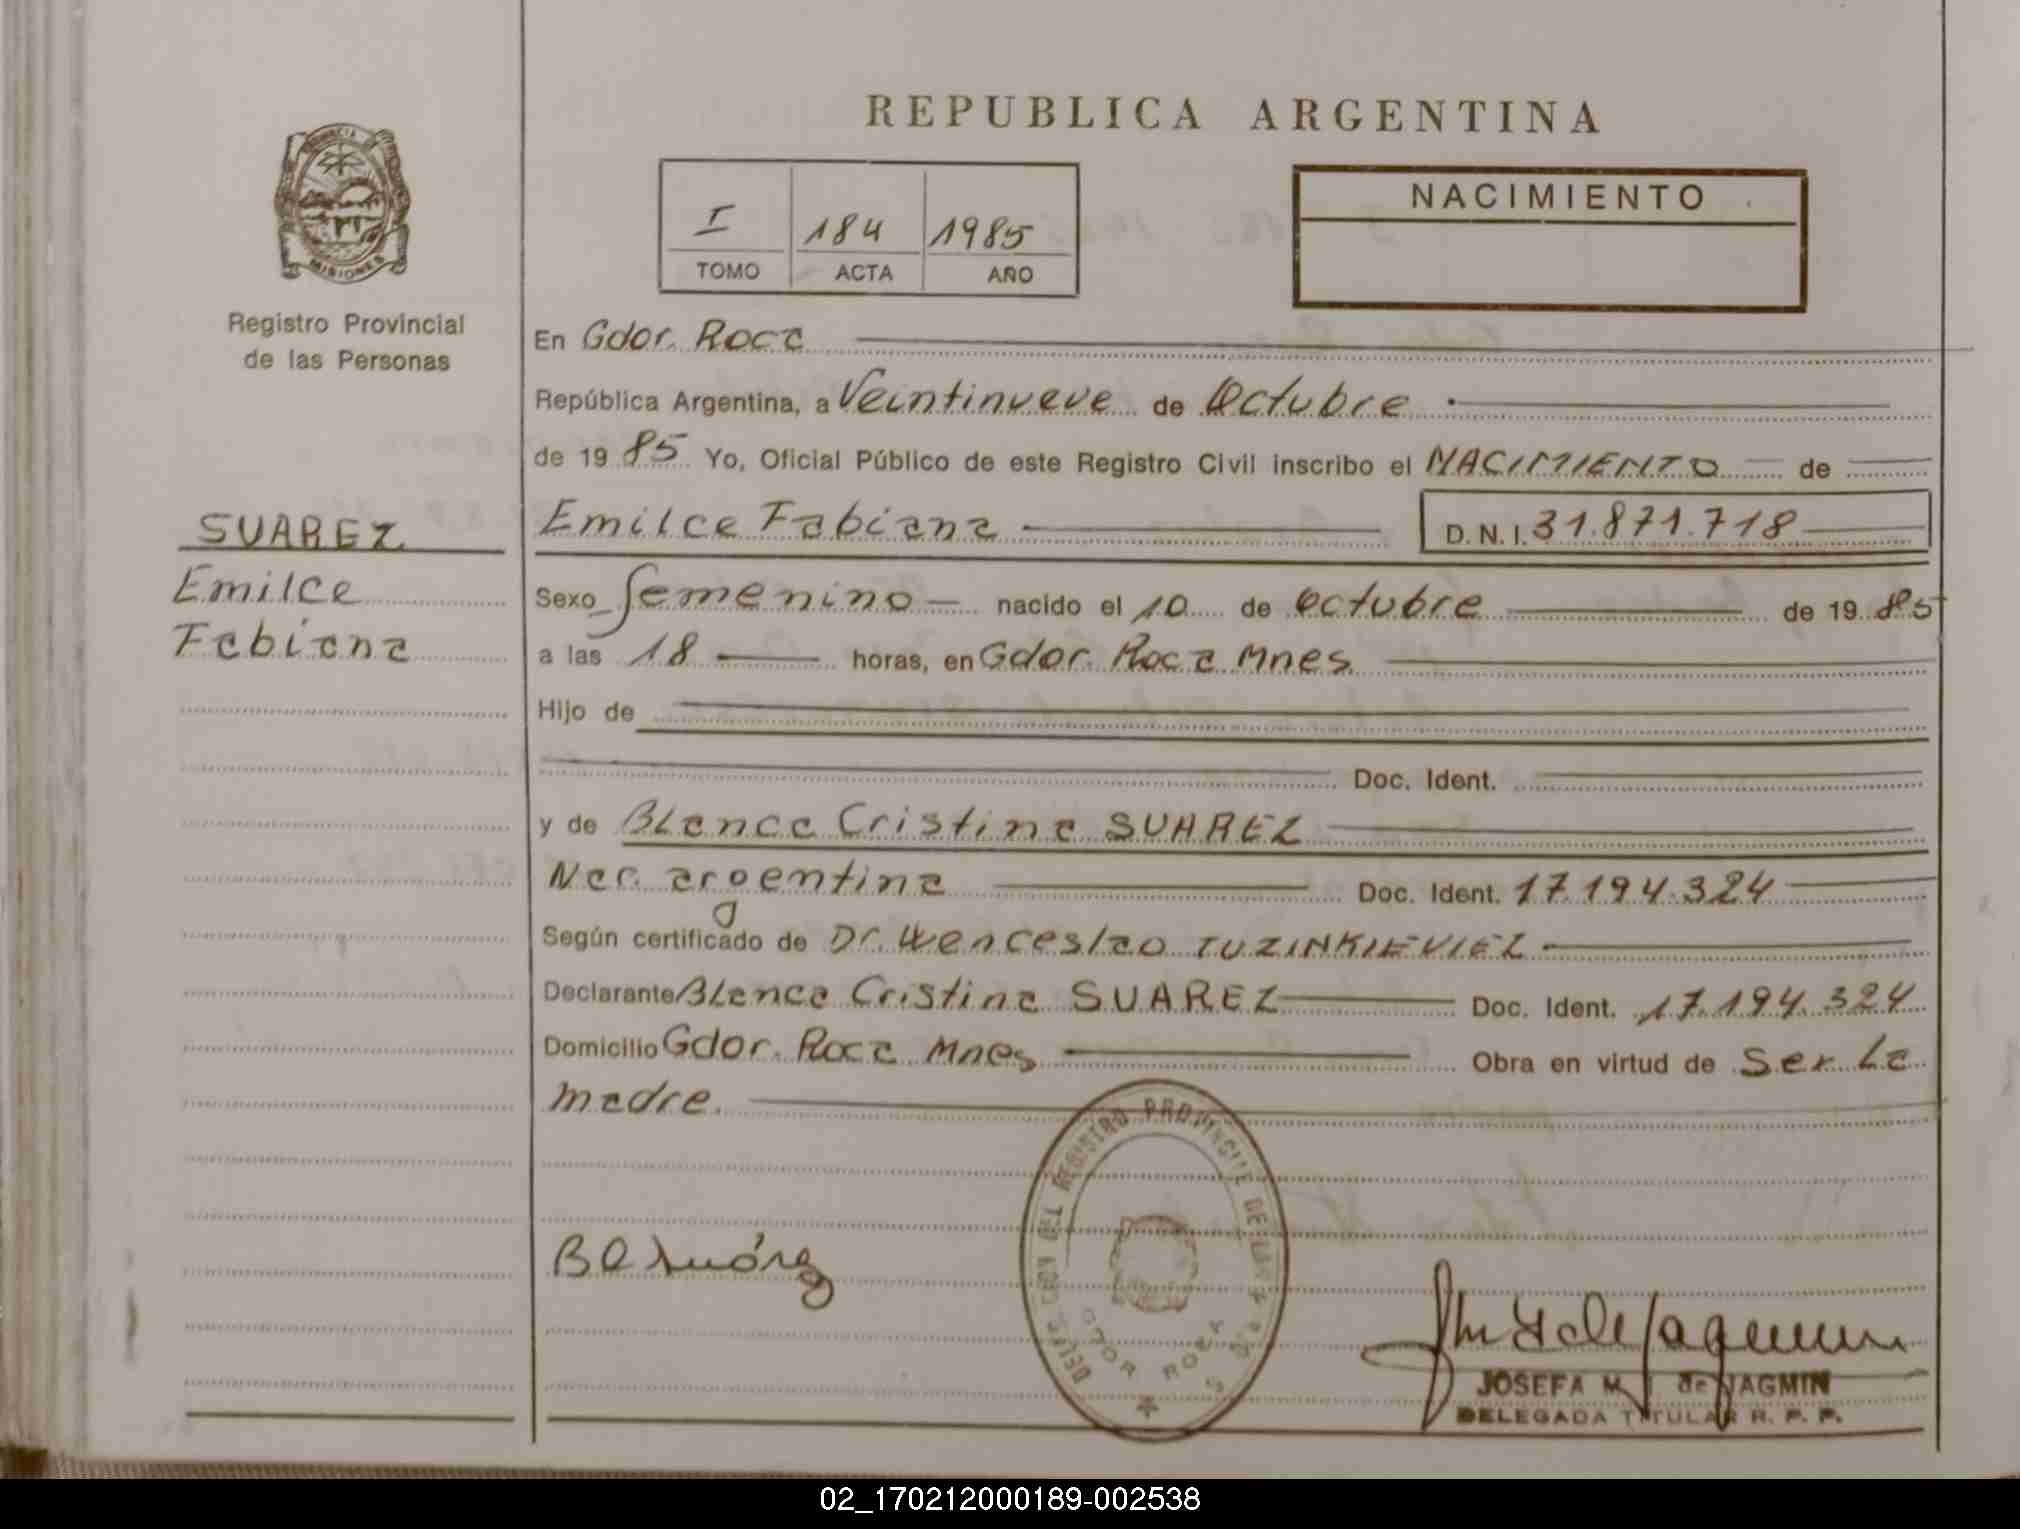 REPUBLICA ARGENTINA
PROVINCIA
MISIONES
Registro Provincial
de las Personas
I 184 1985
TOMO ACTA AÑO
NACIMIENTO
En Gdor. Roca
República Argentina, a Veintinueve de Octubre
de 19 85 Yo, Oficial Público de este Registro Civil inscribo el NACIMIENTO de
SUAREZ
Emilce
Fabiana
Emilce Fabiana D. N. I. 31.871.718
Sexo femenino nacido el 10 de octubre de 19 85
a las 18 horas, en Gdor. Roca Mnes.
Hijo de
Doc. Ident.
y de Blanca Cristina SUAREZ
Nac. argentina Doc. Ident. 17.194.324
Según certificado de Dr. Wenceslao TUZINKIEVIEZ
Declarante Blanca Cristina SUAREZ Doc. Ident. 17.194.324
Domicilio Gdor. Roca Mnes Obra en virtud de Ser la
madre.
DEL REGISTRO PROVINCIAL DE LAS
GDOR ROCA
B C Suárez
JOSEFA M. de JAGMIN
DELEGADA TITULAR R. P. P.
02_170212000189-002538